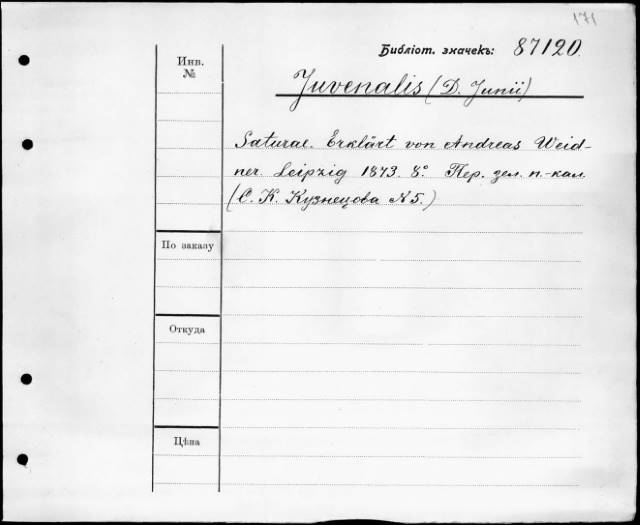 171
Библіот. значекъ: 87120.
Инв.
№
Juvenalis (D. Junii)
Saturae. Erklärt von Andreas Weid-
ner. Leipzig 1873. 8° Пер. зел. п.-кал.
(С. К. Кузнецова №5.)
По заказу
Откуда
Цѣна